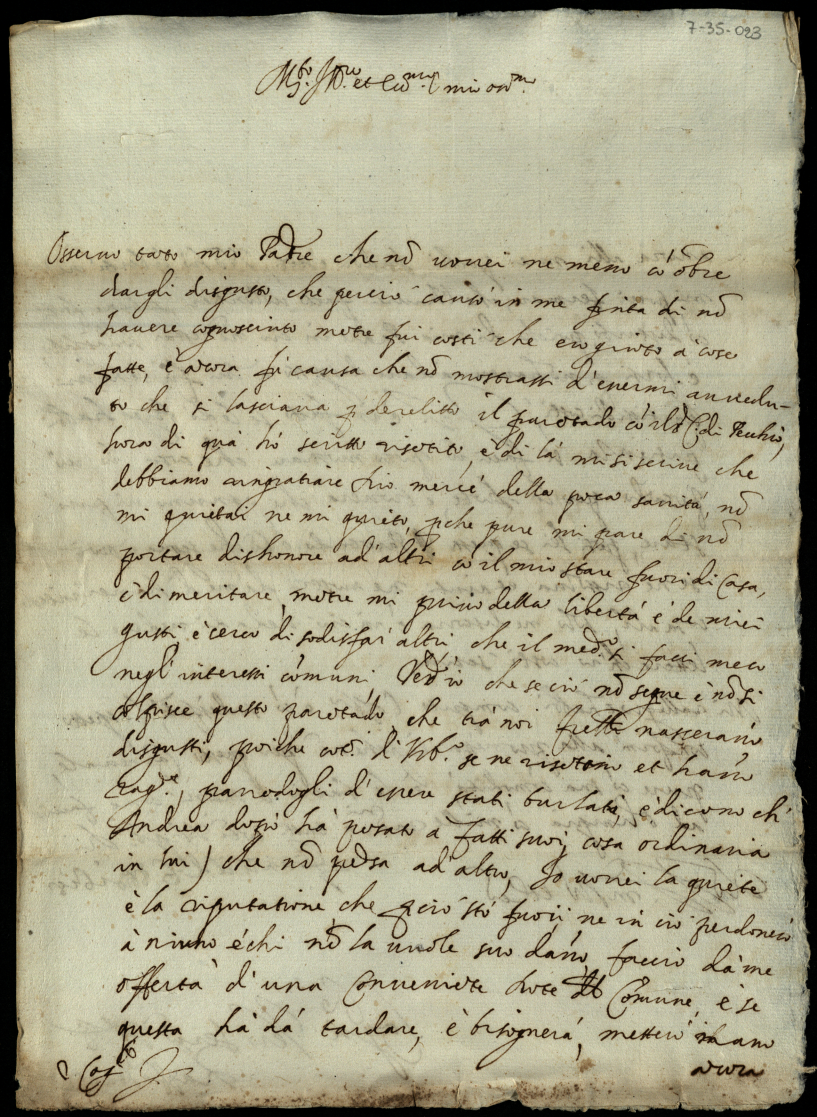 7-35-023
Osservo tato mio Padre che nō vorrei ne meno cō ōbre
dargli disgusto, che perciò causò in me finta di nō
havere conosciuto mētre fui costì che ero giunto à cose
fatte, è ācora fù causa che nō mostrassi d'essermi avvedu-
to che si lasciava derelitto il parētado
hora di quà hò scritto risētito, è di là mi si scrive che
debbiamo ringratiare Dio mercè della poca sanità, nō
mi quietai ne mi quieto, pche pure mi pare di nō
portare dishonore ad altri cō il mio stare fuori di Casa,
è di meritare, mētre mi privo della libertà è de miei
gusti, è cerco di sodisfar altri, che il med.º si facci meco
negl'interessi cōmuni, Vedo io che se ciò nō segue è nō si
questo parētado, che trà noi frelli nasserāno
disgusti, poiche se ne risētono et hāno
rag.e, parēdogli d'essere stati burlati, è dicono ch'
Andrea doppò hà pēsato a fatti suoi, cosa ordinaria
in lui) che nō pēsa ad altro, Io vorrei la quiete
è la riputatione, che perciò stò fuori, ne in ciò perdonerò
à niuno è chi nō la vuole suo dāno, faccio dà me
offerta d'una Conveniēte dote Cōmune, è se
questa hà dà tardare, è bisognerà, metterci
ācora